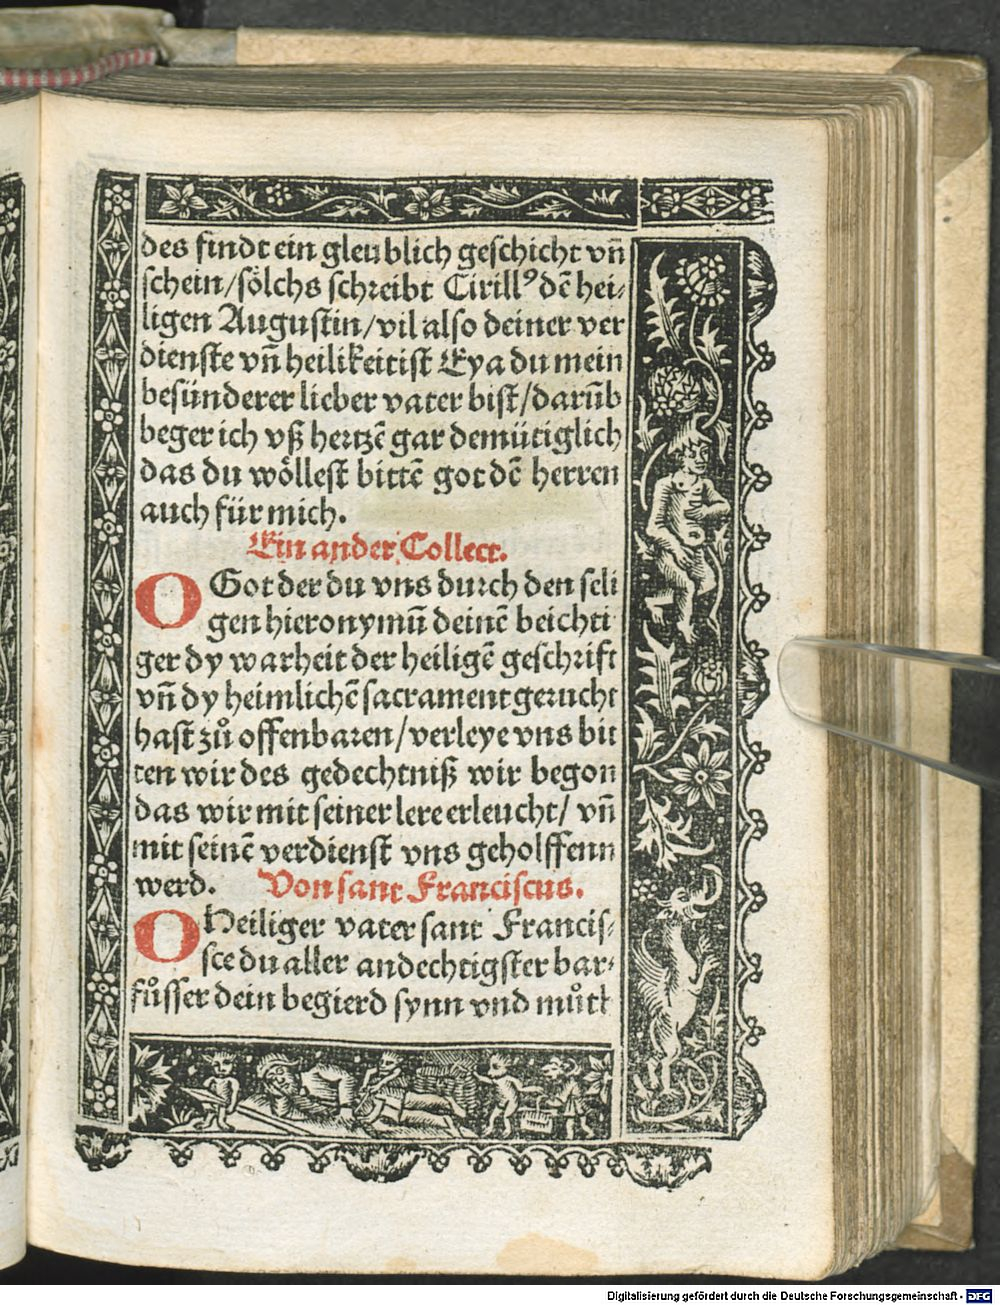 des findt ein gleublich geschicht vñ
schein/sölchs schreibt Cirillꝰ dē hei⸗
ligen Augustin/vil also deiner ver
dienste vñ heilikeit ist Eya du mein
besünderer lieber vater bist/darūb
beger ich vß hertzē gar demütiglich
das du wöllest bittē got dē herren
auch für mich.
Ein ander Collect.
O Got der du vns durch den seli
gen hieronymū deinē beichti
ger dy warheit der heiligē geschrift
vñ dy heimlichē sacrament gerucht
hast zů offenbaren/verleye vns bit
ten wir des gedechtniß wir begon
das wir mit seiner lere erleucht/ vñ
mit seinē verdienst vns geholffenn
werd. Von sant Franciscus.
O Heiliger vater sant Francis⸗
sce du aller andechtigster bar⸗
fůsser dein begierd synn vnd můtt
Digitalisierung gefördert durch die Deutsche Forschungsgemeinschaft - DFG